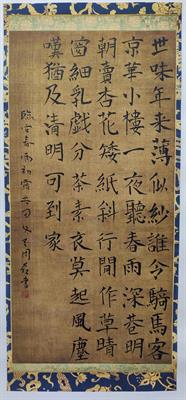 世味年来薄似紗誰令騎馬客
京華小樓一夜聽春雨深巷明
朝賣杏花矮紙斜行閒作草晴
窗細乳戲分茶素衣莫起風塵
嘆猶及清明可到家
臨安春雨初霽